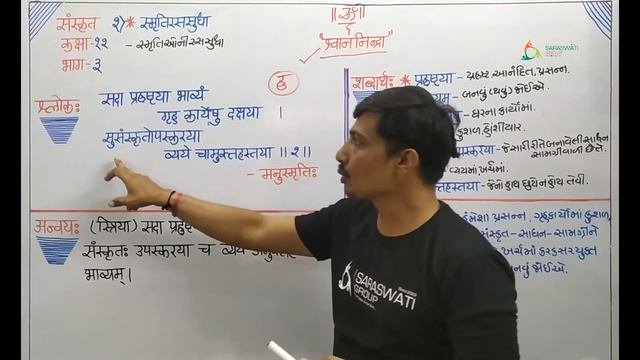 संस्कृत
२) * स्मृतिरससुधा
કક્ષા-૧૨
- સ્મૃતિઓની રસ સુધા
ભાગ-૩
॥ ૐ ॥
"श्वाननिन्द्रा"
SARASWATI
GROUP
श्लोकः
सदा प्रहृष्टया भाव्यं
गृह कार्येषु दक्षया ।
सुसंस्कृतोपस्करया
व्यये चामुक्तहस्तया ॥ २ ॥
- मनुस्मृतिः
शब्दार्थः * प्रहृष्टया - પ્રહૃષ્ટ, આનંદિત, પ્રસન્ન.
- બનવું (થવું) જોઈએ.
- ઘરના કાર્યોમાં
કુશળ, હોંશિયાર.
- જે સારી રીતે બનાવેલી સાધન
સામગ્રીવાળી છે તે.
વ્યયમાં, ખર્ચમાં.
- જેનો હાથ છૂટો ન હોય તેવી.
अन्वयः (स्त्रिया) सदा
संस्कृतः उपस्करया च व्यये
भाव्यम् ।
હંમેશા પ્રસન્ન, ગૃહકાર્યોમાં કુશળ,
સંસ્કૃત-સાધન-સામગ્રીને
ખર્ચમાં કરકસરયુક્ત
બનવું જોઈએ.
SARASWATI
GROUP